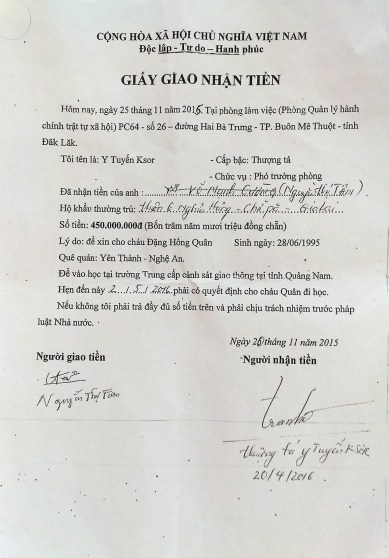 CỘNG HÒA XÃ HỘI CHỦ NGHĨA VIỆT NAM
Độc lập - Tự do – Hạnh phúc
GIẤY GIAO NHẬN TIỀN
Hôm nay, ngày 25 tháng 11 năm 2015. Tại phòng làm việc (Phòng Quản lý hành
chính trật tự xã hội) PC64 - số 26 – đường Hai Bà Trưng - TP. Buôn Mê Thuột - tỉnh
Đăk Lăk.
Tôi tên là: Y Tuyến Ksor - Cấp bậc: Thượng tá
- Chức vụ: Phó trưởng phòng
Đã nhận tiền của anh : Võ Mạnh Cường (Nguyễn Thị Tâm)
Hộ khẩu thường trú: Thôn 6 Nghĩa Hưng - Chư pă - Gia lai
Số tiền: 450.000.000đ (Bốn trăm năm mươi triệu đồng chẵn)
Lý do: để xin cho cháu Đặng Hồng Quân Sinh ngày: 28/06/1995
Quê quán: Yên Thành - Nghệ An.
Để vào học tại trường Trung cấp cảnh sát giao thông tại tỉnh Quảng Nam.
Hẹn đến này 2./.5./.2016 phải có quyết định cho cháu Quân đi học.
Nếu không tôi phải trả đầy đủ số tiền trên và phải chịu trách nhiệm trước pháp
luật Nhà nước.
Ngày 26 tháng 11 năm 2015
Người giao tiền Người nhận tiền
Nguyễn Thị Tâm
thượng tá Y Tuyến KSOR
20/4/2016